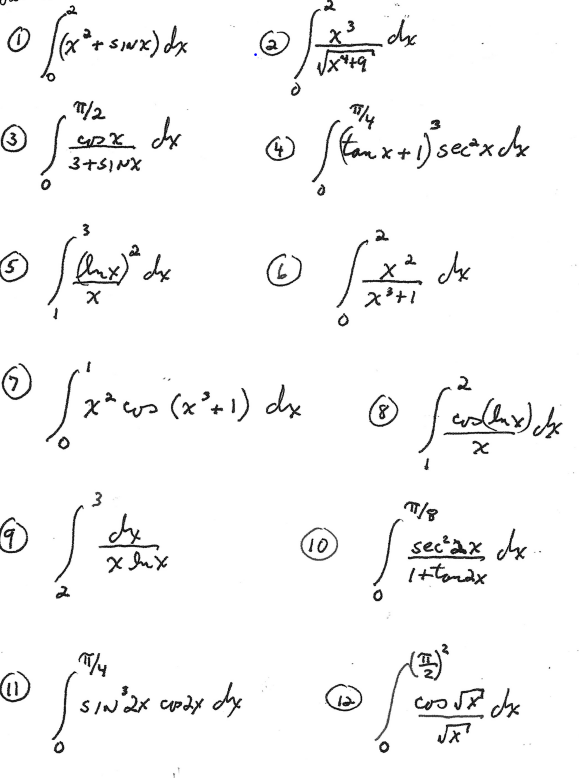 ① ∫₀² (x² + sin x) dx ② ∫₀² x³/√(x⁴+9) dx
③ ∫₀^(π/2) cos x/(3+sin x) dx ④ ∫₀^(π/4) (tan x + 1)³ sec² x dx
⑤ ∫₁³ (ln x)²/x dx ⑥ ∫₀² x²/(x³+1) dx
⑦ ∫₀¹ x² cos (x³+1) dx ⑧ ∫₁² cos(ln x)/x dx
⑨ ∫₂³ dx/(x ln x) ⑩ ∫₀^(π/8) sec² 2x/(1+tan 2x) dx
⑪ ∫₀^(π/4) sin³ 2x cos 2x dx ⑫ ∫₀^((π/2)²) cos √x/√x dx